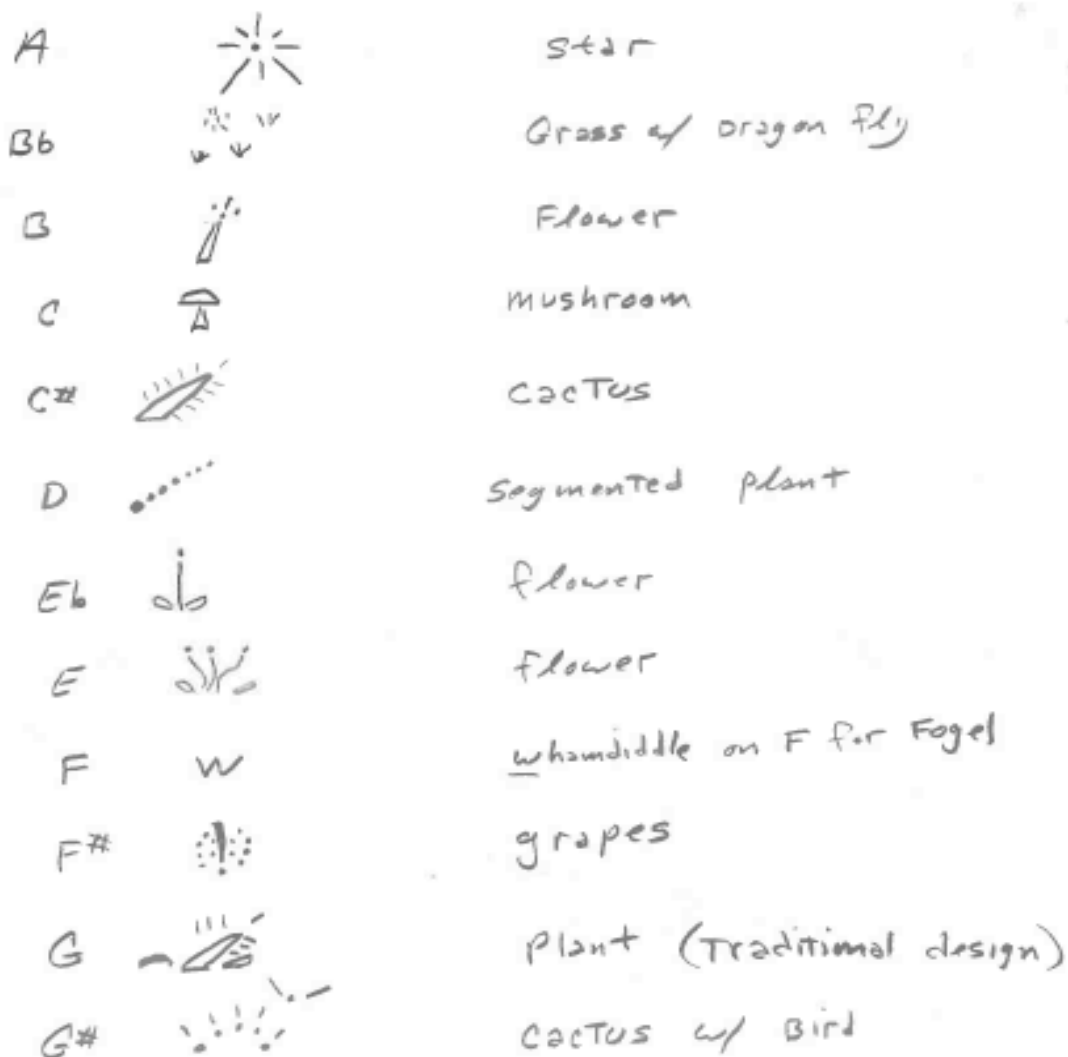 A star
Bb Grass w/ Dragon fly
B Flower
C mushroom
C# cacTus
D segmenTed plant
Eb flower
E flower
F W whamdiddle on F for Fogel
F# grapes
G Plant (Traditional design)
G# cacTus w/ Bird